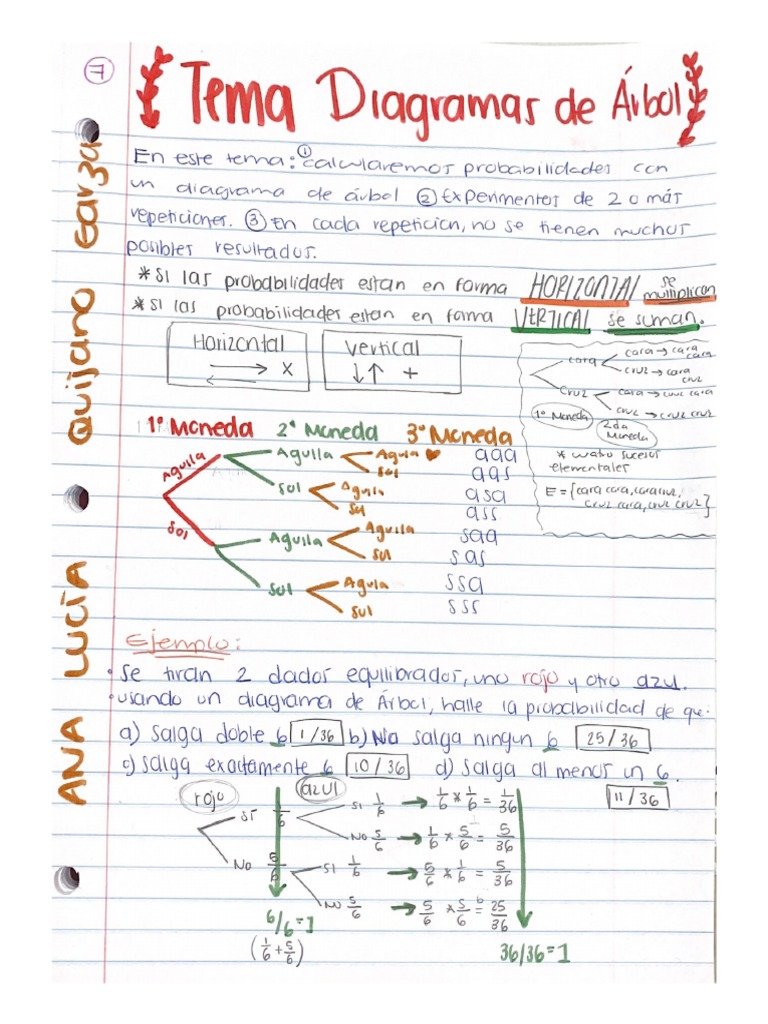 7
Tema Diagramas de Árbol
ANA LUCÍA QUIJANO Garza
En este tema: ① calcularemos probabilidades con
un diagrama de árbol ② Experimentos de 2 o más
repeticiones. ③ En cada repetición, no se tienen muchos
posibles resultados.
* Si las probabilidades estan en forma HORIZONTAL se multiplican
* Si las probabilidades estan en forma VERTICAL se suman.
Horizontal
→ x
←
Vertical
↓↑ +
cara
cara → cara cara
cruz → cara cruz
cruz
cara → cruz cara
cruz → cruz cruz
1º Moneda
2da Moneda
* cuatro sucesos
elementales
E = {cara cara, cara cruz,
cruz cara, cruz cruz}
1º Moneda 2ª Moneda 3º Moneda
Aguila Aguila Aguila aaa
Sol aas
Sol Aguila asa
Sol ass
Sol Aguila Aguila saa
Sol sas
Sol Aguila ssa
Sol sss
Ejemplo:
• Se tiran 2 dados equilibrados, uno rojo y otro azul.
• usando un diagrama de Árbol, halle la probabilidad de que:
a) Salga doble 6 1/36 b) No salga ningun 6 25/36
c) Salga exactamente 6 10/36 d) Salga al menos un 6.
11/36
rojo azul
SÍ 1/6 SI 1/6 → 1/6 * 1/6 = 1/36
NO 5/6 → 1/6 * 5/6 = 5/36
No 5/6 SI 1/6 → 5/6 * 1/6 = 5/36
NO 5/6 → 5/6 * 5/6 = 25/36
6/6 = 1
(1/6 + 5/6)
36/36 = 1